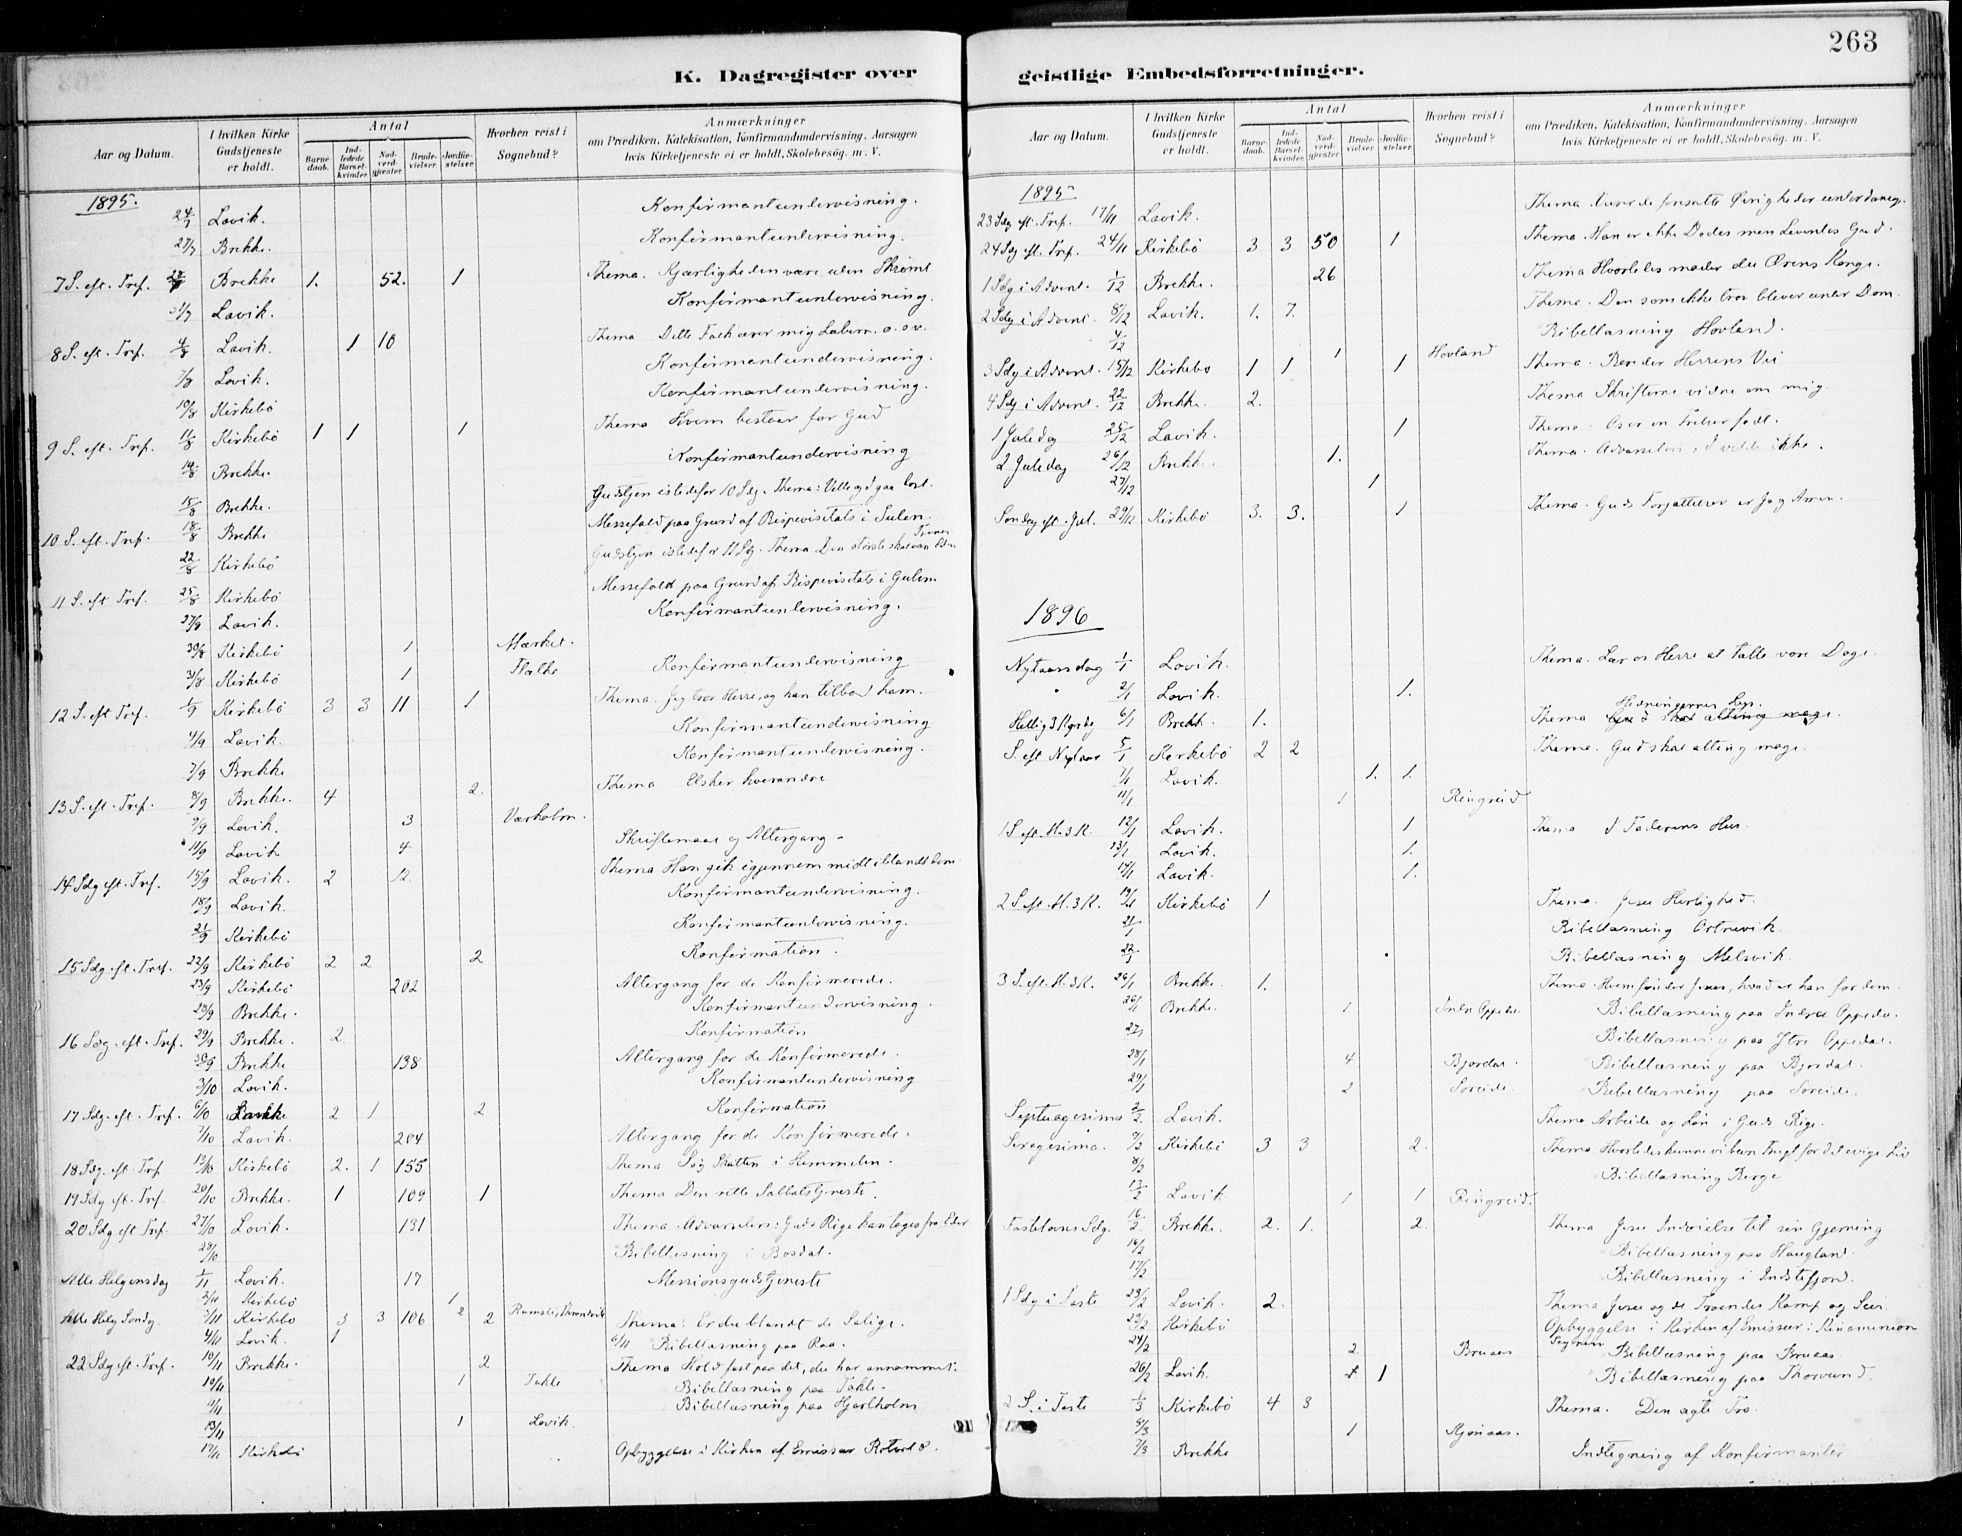 263
K. Dagregister over geistlige Embedsforretninger.
Aar og Datum. I hvilken Kirke Gudstjeneste er holdt. Antal Barnedaab. Indledede Barselkvinder Nadverdgjæster Brudevielser Jordfæstelser Hvorhen reist i Sognebud? Anmærkninger om Prædiken, Katekisation, Konfirmandundervisning, Aarsagen hvis Kirketjeneste ei er holdt, Skolebesög. m. V.
1895.
24/7 Lavik. Konfirmantundervisning.
27/7 Brekke. Konfirmantundervisning.
7 S. eft. Tref. Brekke 1. 52. 1 Thema. Kjærligheden være uden Skrømt
31/7 Lavik. Konfirmantundervisning.
8 S. eft. Tref. 4/8 Lavik. 1 10 Thema Dette Folk ærer mig Læbern. o.s.v.
7/8 Lavik. Konfirmantundervisning.
10/8 Kirkebö Konfirmantundervisning.
9 S. eft. Tref. 11/8 Kirkebö 1 1 1 Thema Hvem bestaar for Gud
14/8 Brekke. Konfirmantundervisning
15/8 Brekke. Gudstjen istedefor 10 Sdg. Thema: Ville og gaa bort.
10 S. eft. Tref. 18/8 Brekke Messefald paa Grund af Bispevisitats i Sulen.
22/8 Kirkebö Gudstjen istedefor 11 Sdg. Thema Den største skal være Eders Tjener
11 S. eft Tref. 25/8 Kirkebö Messefald paa Grund af Bispevisitats i Gulen.
27/8 Lavik. Konfirmantundervisning.
30/8 Kirkebö 1 Mærket.
31/8 Kirkebö 1 Konfirmantundervisning
12 S. eft Tref. 1/9 Kirkebö 3 3 11 1 Thema. Jeg tror Herre, og han tilbad ham.
4/9 Lavik. Konfirmantundervisning
7/9 Brekke Konfirmantundervisning.
13 S. eft. Tref. 8/9 Brekke. 4 2. Thema Elsker hverandre
9/9 Lavik. 3 Værholm.
11/9 Lavik 4 Skriftemaal og Altergang.
14 Sdg eft. Tref. 15/9 Lavik. 2 12. Thema Han gik igjennem midt iblandt dem.
18/9 Lavik. Konfirmantundervisning.
21/9 Kirkebö Konfirmantundervisning.
15 Sdg eft. Tref. 22/9 Kirkebö 2 2 2 Konfirmation.
23/9 Kirkebö 202 Altergang for de Konfirmerede.
28/9 Brekke. Konfirmantundervisning.
16 Sdg. eft. Tref. 29/9 Brekke. 2. Konfirmation
30/9 Brekke 138 Altergang for de Konfirmerede.
3/10 Lavik. Konfirmantundervisning
17 Sdg. eft. Tref. 6/10 2 1 2 Konfirmation
7/10 Lavik. 204 Altergang for de Konfirmerede.
18 Sdg. eft. Tref 13/10 Kirkebö 2. 1 155 Thema Søg Skatten i Himmelen.
19 Sdg eft. Tref. 20/10 Brekke. 1 109 1 Thema Den rette Sabbatstjeneste.
20 Sdg eft Tref. 27/10 Lavik. 131 Thema. Advarselen: Guds Rige kan tages fra Eder
28/10 Bibellæsning i Bosdal.
Alle Helgensdag 1/11 Lavik. 17 Missionsgudstjeneste
2/11 Kirkebö 1
Alle Helg Søndg 3/11 Kirkebö 3 3 106 2 2 Thema: Er du blandt de Salige.
4/11 Lavik. 1 6/11 Bibellæsning paa Raa.
22 Sdg eft. Tref. 10/11 Brekke. 2 Thema Hold fast paa det, du har annammet.
10/11 1 Takle Bibellæsning paa Takle.
11/11 Bibellæsning paa Hjartholm
13/11 1 Lavik.
17/11 Kirkebö Opbyggelse i Kirken af Emissær
Aar og Datum. I hvilken Kirke Gudstjeneste er holdt. Antal Barnedaab. Indledede Barselkvinder Nadverdgjæster Brudevielser Jordfæstelser Hvorhen reist i Sognebud? Anmærkninger om Prædiken, Katekisation, Konfirmandundervisning, Aarsagen hvis Kirketjeneste ei er holdt, Skolebesög. m. V.
1895
23 Sdg eft. Tref. 17/11 Lavik. Thema. Være de foresatte Øvrigheder underdanig.
24 Sdg eft. Tref. 24/11 Kirkebö 3 3 50 1 Thema. Han er ikke Dødes men Levendes Gud.
1 Sdg i Advent. 1/12 Brekke. 26 Thema Hvorledes møder du Ærens Konge.
2 Sdg i Advent 8/12 Lavik. 1. 7. Thema. Den som ikke tror bliver under Dom.
4/12 1 Hovland Bibellæsning Hovland.
3 Sdg i Advent. 15/12 Kirkebo 1 1 1 Thema. Bereder Herrens Vei
4 Sdg i Advent. 22/12 Brekke. 2. Thema Skrifterne vidne om mig.
1 Juledag 25/12 Lavik. 1 Thema. Os er en Frelser født.
2 Juledag 26/12 Brekke. 1. Thema. Advarselen: I vilde ikke.
27/12 1
Søndag eft. Jul. 29/12 Kirkebö 3. 3. 1 Thema. Guds Forjættelser er Ja og Amen.
1896
Nytaarsdag 1/1 Lavik. Thema. Lær os Herre at tælle vore Dage.
2/1 Lavik. 1.
Hellig 3 Kgsdg 6/1 Brekk. 1. Thema Hedningernes Lys.
S. eft Nytaar 5/1 Kirkebö 2 2 Thema. Gud skal alting mage.
7/1 Lavik. 1. 1.
11/1 1 Ringreid
1 S. eft. H. 3 K. 12/1 Lavik. 1 Thema I Faderens Hus.
13/1 Lavik. 1.
14/1 Lavik. 1.
2 S. eft. H. 3 K. 19/1 Kirkebö 1 Thema. Jesu Herlighed.
21/1 Bibellæsning Ortnevik.
22/1 Bibellæsning Melsvik.
3 S. eft. H. 3 K. 26/1 Brekke. 1. Thema. Hvem finder Jesus, hvad er han for dem.
26/1 Brekke. 1 Indre Oppedal. Bibellæsning paa Indre Oppedal.
27/1 Bibellæsning paa Ytre Oppedal.
28/1 4 Bjordal. Bibellæsning paa Bjordal.
29/1 2 Søreide. Bibellæsning paa Søreide.
Septuagesima 2/2 Lavik. Thema Arbeide og Løn i Guds Rige.
Sexagesima. 9/2 Kirkebö 3 3 2. Thema Hvorledes kunne vi bære Frugt for det evige Liv
8/2 Bibellæsning Berge
13/2 Lavik 1 1 Ringreid.
Fastelavns Sdg. 16/2 Brekke. 2. 1. 2. Thema Jesu Indvielse til sin Gjerning
16/2 Bibellæsning paa Haugland.
17/2 Bibellæsning i Indstefjord.
1 Sdg i Faste 23/2 Lavik. 2. Thema Jesu og de Troendes Kamp og Seir.
23/2 Kirkebö Opbyggelse i Kirken af Emissær i Kinamission
24/2 2 Bruaas Bibellæsning paa Bruaas.
26/2 Lavik. 1 Bibellæsning paa Thorsund.
2 S. i Faste 1/3 Kirkebö 4 3 Thema. Den ægte Tro.
5/3 1
7/3 Brekke Indtegning af Konfirmanter